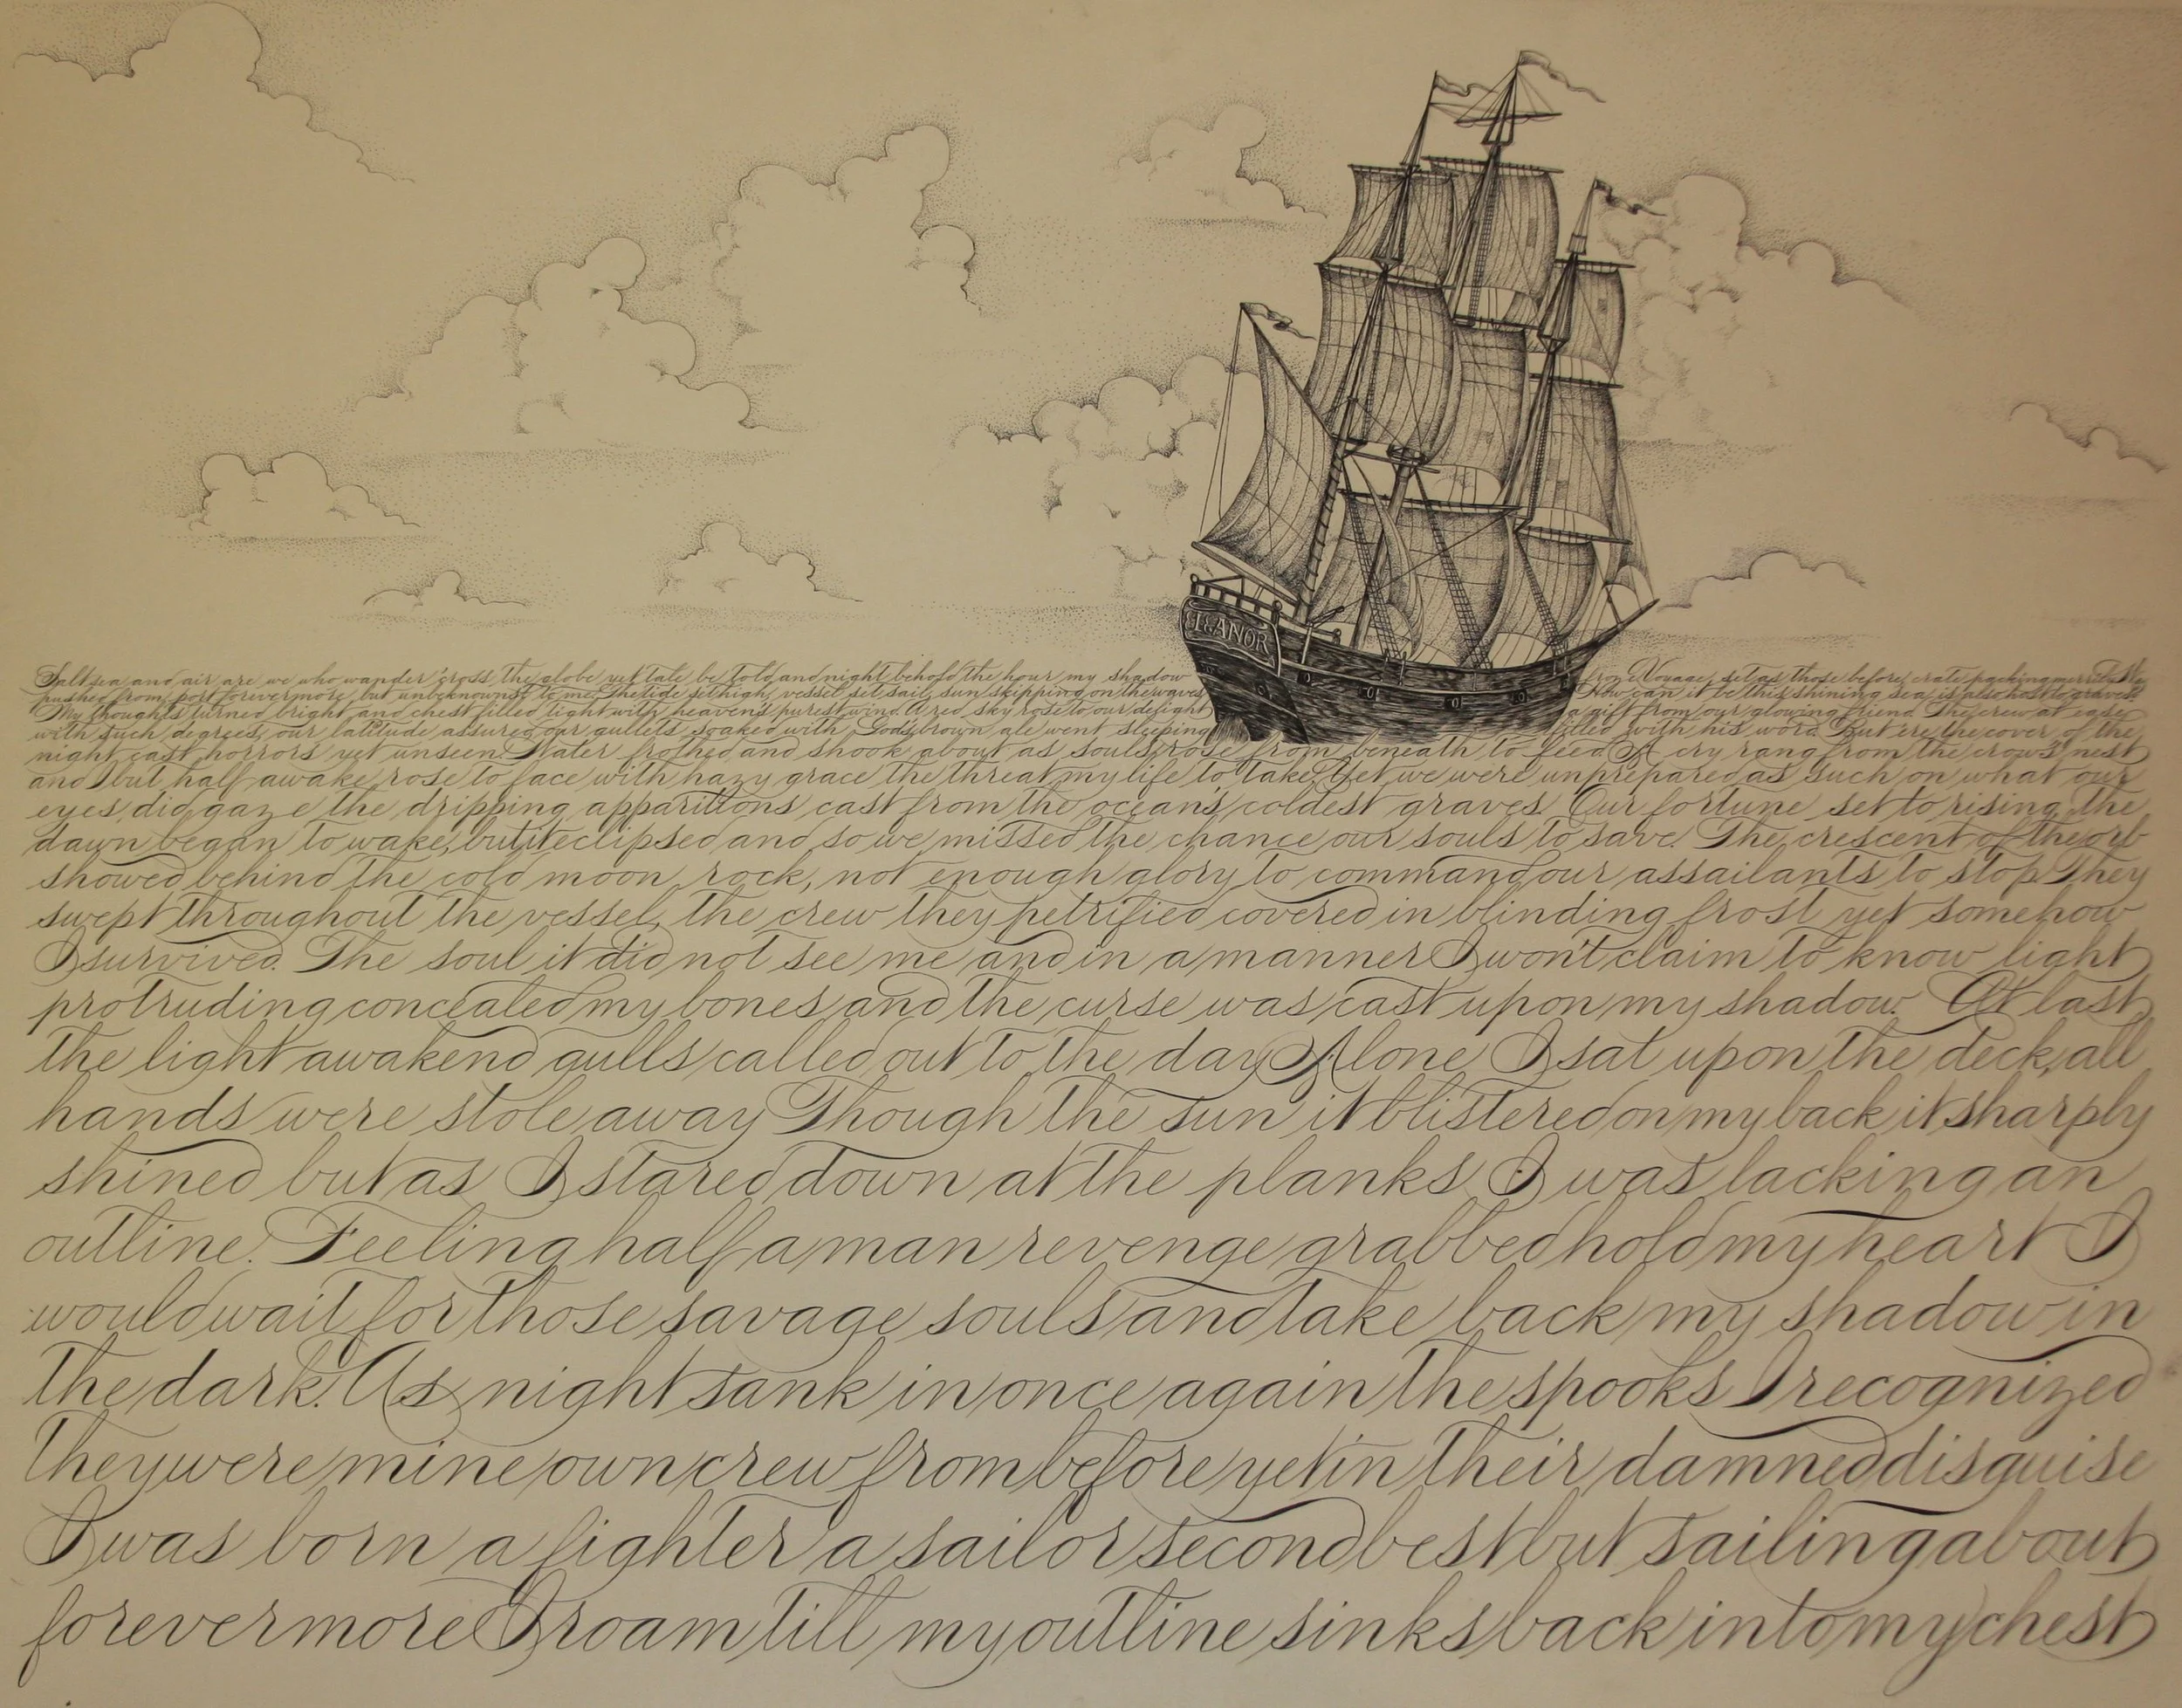 ELEANOR
Salt sea and air are we who wander 'cross the globe yet tale be told and night behold the hour my shadow
from Voyage, set as those before, crate packing merrily We
pushed from port forevermore but unbeknownst to me. The tide set high, vessel set sail, sun skipping on the waves
How can it be this shining sea is also host to graves?
My thoughts turned bright and chest filled tight with heaven's purest wind A red sky rose to our delight
a gift from our glowing friend The crew at ease
with such degrees, our latitude assured our gullets soaked with God's brown ale went sleeping
filled with his word. But ere the cover of the
night cast horrors yet unseen. Water frothed and shook about as souls rose from beneath to feed A cry rang from the crow's nest
and I but half awake rose to face with hazy grace the threat my life to take. Yet we were unprepared as such on what our
eyes did gaze the dripping apparitions cast from the ocean's coldest graves. Our fortune set to rising, the
dawn began to wake, but it eclipsed and so we missed the chance our souls to save. The crescent of the orb
showed behind the cold moon rock, not enough glory to command our assailants to stop. They
swept throughout the vessel, the crew they petrified covered in blinding frost yet somehow
I survived. The soul it did not see me and in a manner I won't claim to know light
protruding concealed my bones and the curse was cast upon my shadow. At last
the light awakend gulls called out to the day Alone I sat upon the deck, all
hands were stole away Though the sun it blistered on my back it sharply
shined but as I stared down at the planks I was lacking an
outline. Feeling half a man revenge grabbed hold my heart I
would wait for those savage souls and take back my shadow in
the dark. As night sank in once again the spooks I recognized
They were mine own crew from before yet in their damned disguise
I was born a fighter a sailor second best but sailing about
forevermore I roam till my outline sinks back into my chest